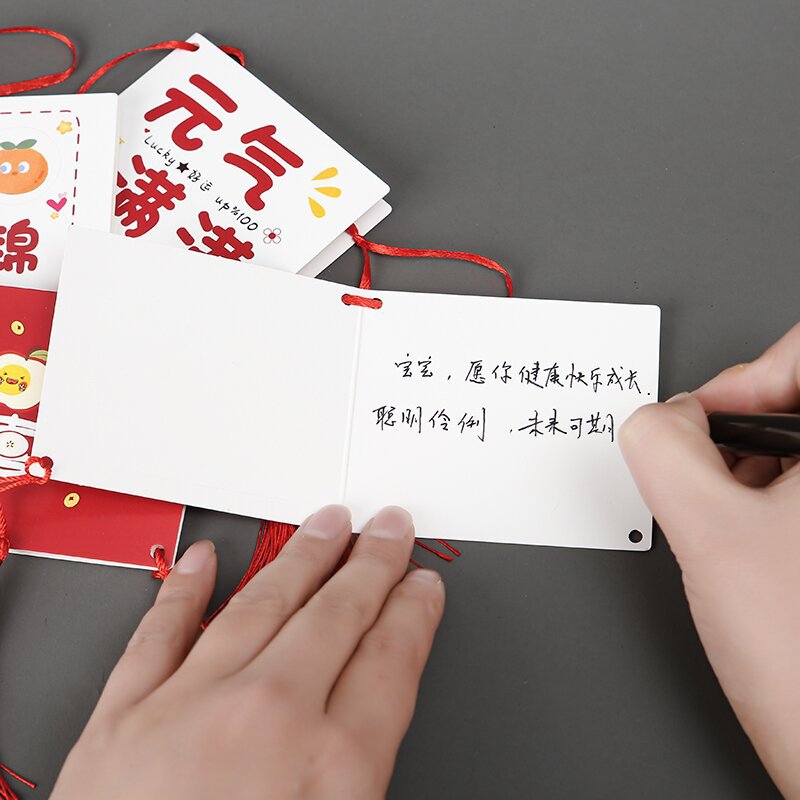 元气
Lucky★好运 up%100
满满
锦
宝宝，愿你健康快乐成长.
聪明伶俐，未来可期